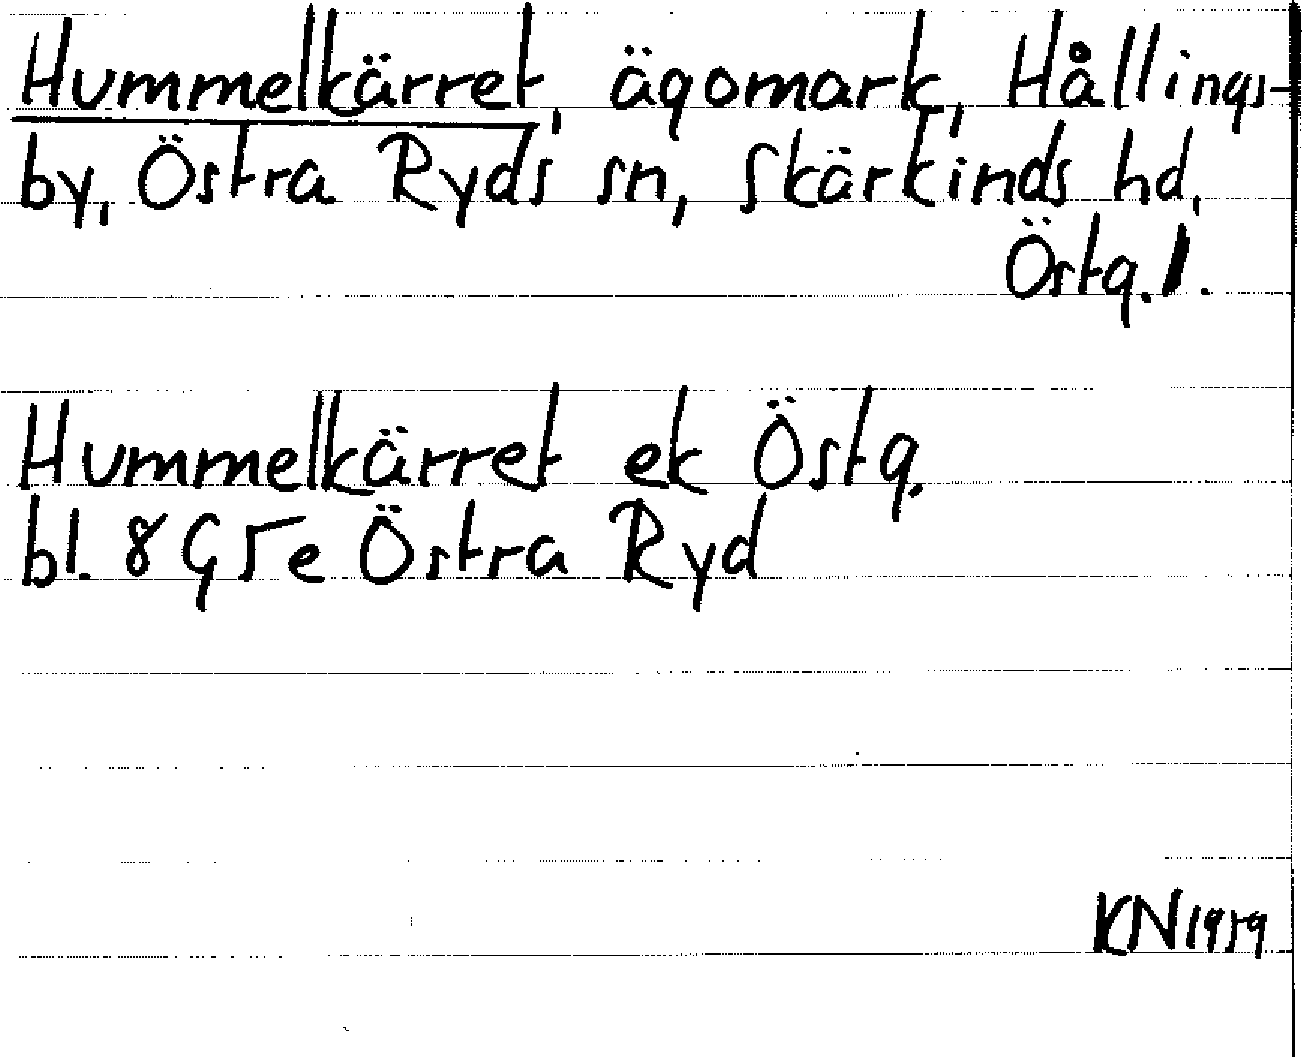 Hummelkärret, ägomark, Hållings-
by, Östra Ryds sn, Skärkinds hd,
Östg. l.
Hummelkärret ek Östg.
bl. 8 G 5 e Östra Ryd
KN 1959